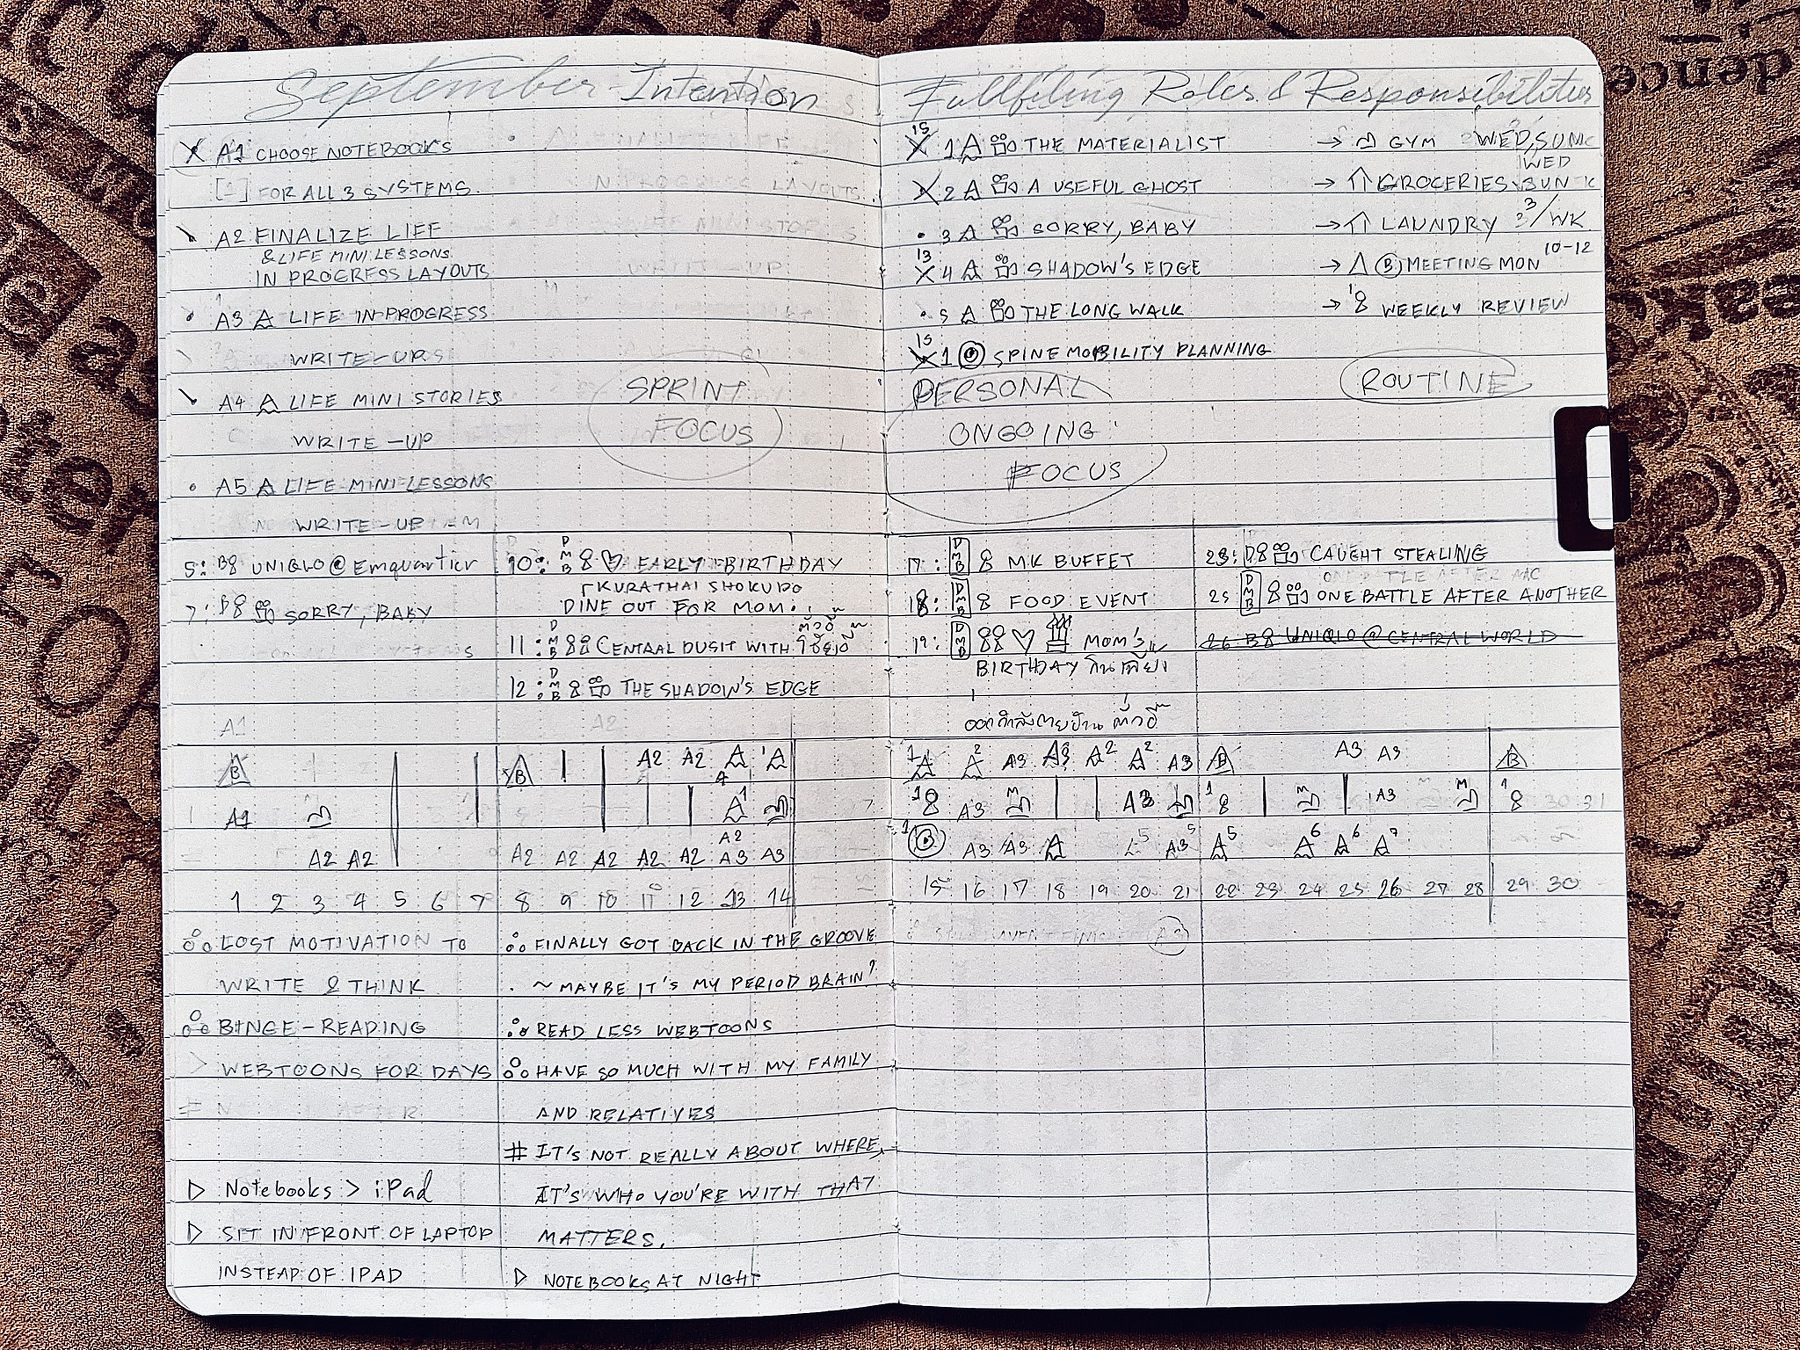 September Intention
X A1 CHOOSE NOTEBOOKS
FOR ALL 3 SYSTEMS.
A2 FINALIZE LIFE
& LIFE MINI LESSONS
IN PROGRESS LAYOUTS
A3 LIFE IN PROGRESS
WRITE-UPS
A4 LIFE MINI STORIES
WRITE-UP
A5 LIFE MINI LESSONS
WRITE-UP
SPRINT
FOCUS
5: B8 UNIQLO @ Emquartier
7: SORRY, BABY
10: DMB EARLY BIRTHDAY
KURATHAI SHOKUDO
DINE OUT FOR MOM
11: DMB CENTRAL DUSIT WITH
12: DMB THE SHADOW'S EDGE
B B A2 A2
A1
A2 A2 A2 A2 A2 A2 A2 A2 A3 A3
1 2 3 4 5 6 7 8 9 10 11 12 13 14
LOST MOTIVATION TO
WRITE & THINK
BINGE-READING
WEBTOONS FOR DAYS
▷ Notebooks > iPad
▷ SIT IN FRONT OF LAPTOP
INSTEAD OF IPAD
FINALLY GOT BACK IN THE GROOVE
~ MAYBE IT'S MY PERIOD BRAIN?
READ LESS WEBTOONS
HAVE SO MUCH WITH MY FAMILY
AND RELATIVES
# IT'S NOT REALLY ABOUT WHERE,
IT'S WHO YOU'RE WITH THAT
MATTERS.
▷ NOTEBOOKS AT NIGHT
Fullfiling Roles & Responsibilities
15 X 1 THE MATERIALIST
X 2 A USEFUL GHOST
• 3 SORRY, BABY
13 X 4 SHADOW'S EDGE
• 5 THE LONG WALK
15 X 1 SPINE MOBILITY PLANNING
PERSONAL
ONGOING
FOCUS
→ GYM WED, SUN
→ GROCERIES WED SUN
→ LAUNDRY 3/WK
→ B MEETING MON 10-12
→ WEEKLY REVIEW
ROUTINE
17: DMB MK BUFFET
18: DMB FOOD EVENT
19: DMB MOM'S
BIRTHDAY
23: CAUGHT STEALING
25 DMB ONE BATTLE AFTER ANOTHER
26 B8 UNIQLO @ CENTRAL WORLD
A3 A3 A2 A3 B A3 A3 B
A3 M A3 M A3 M
B A3 A3 A3
15 16 17 18 19 20 21 22 23 24 25 26 27 28 29 30